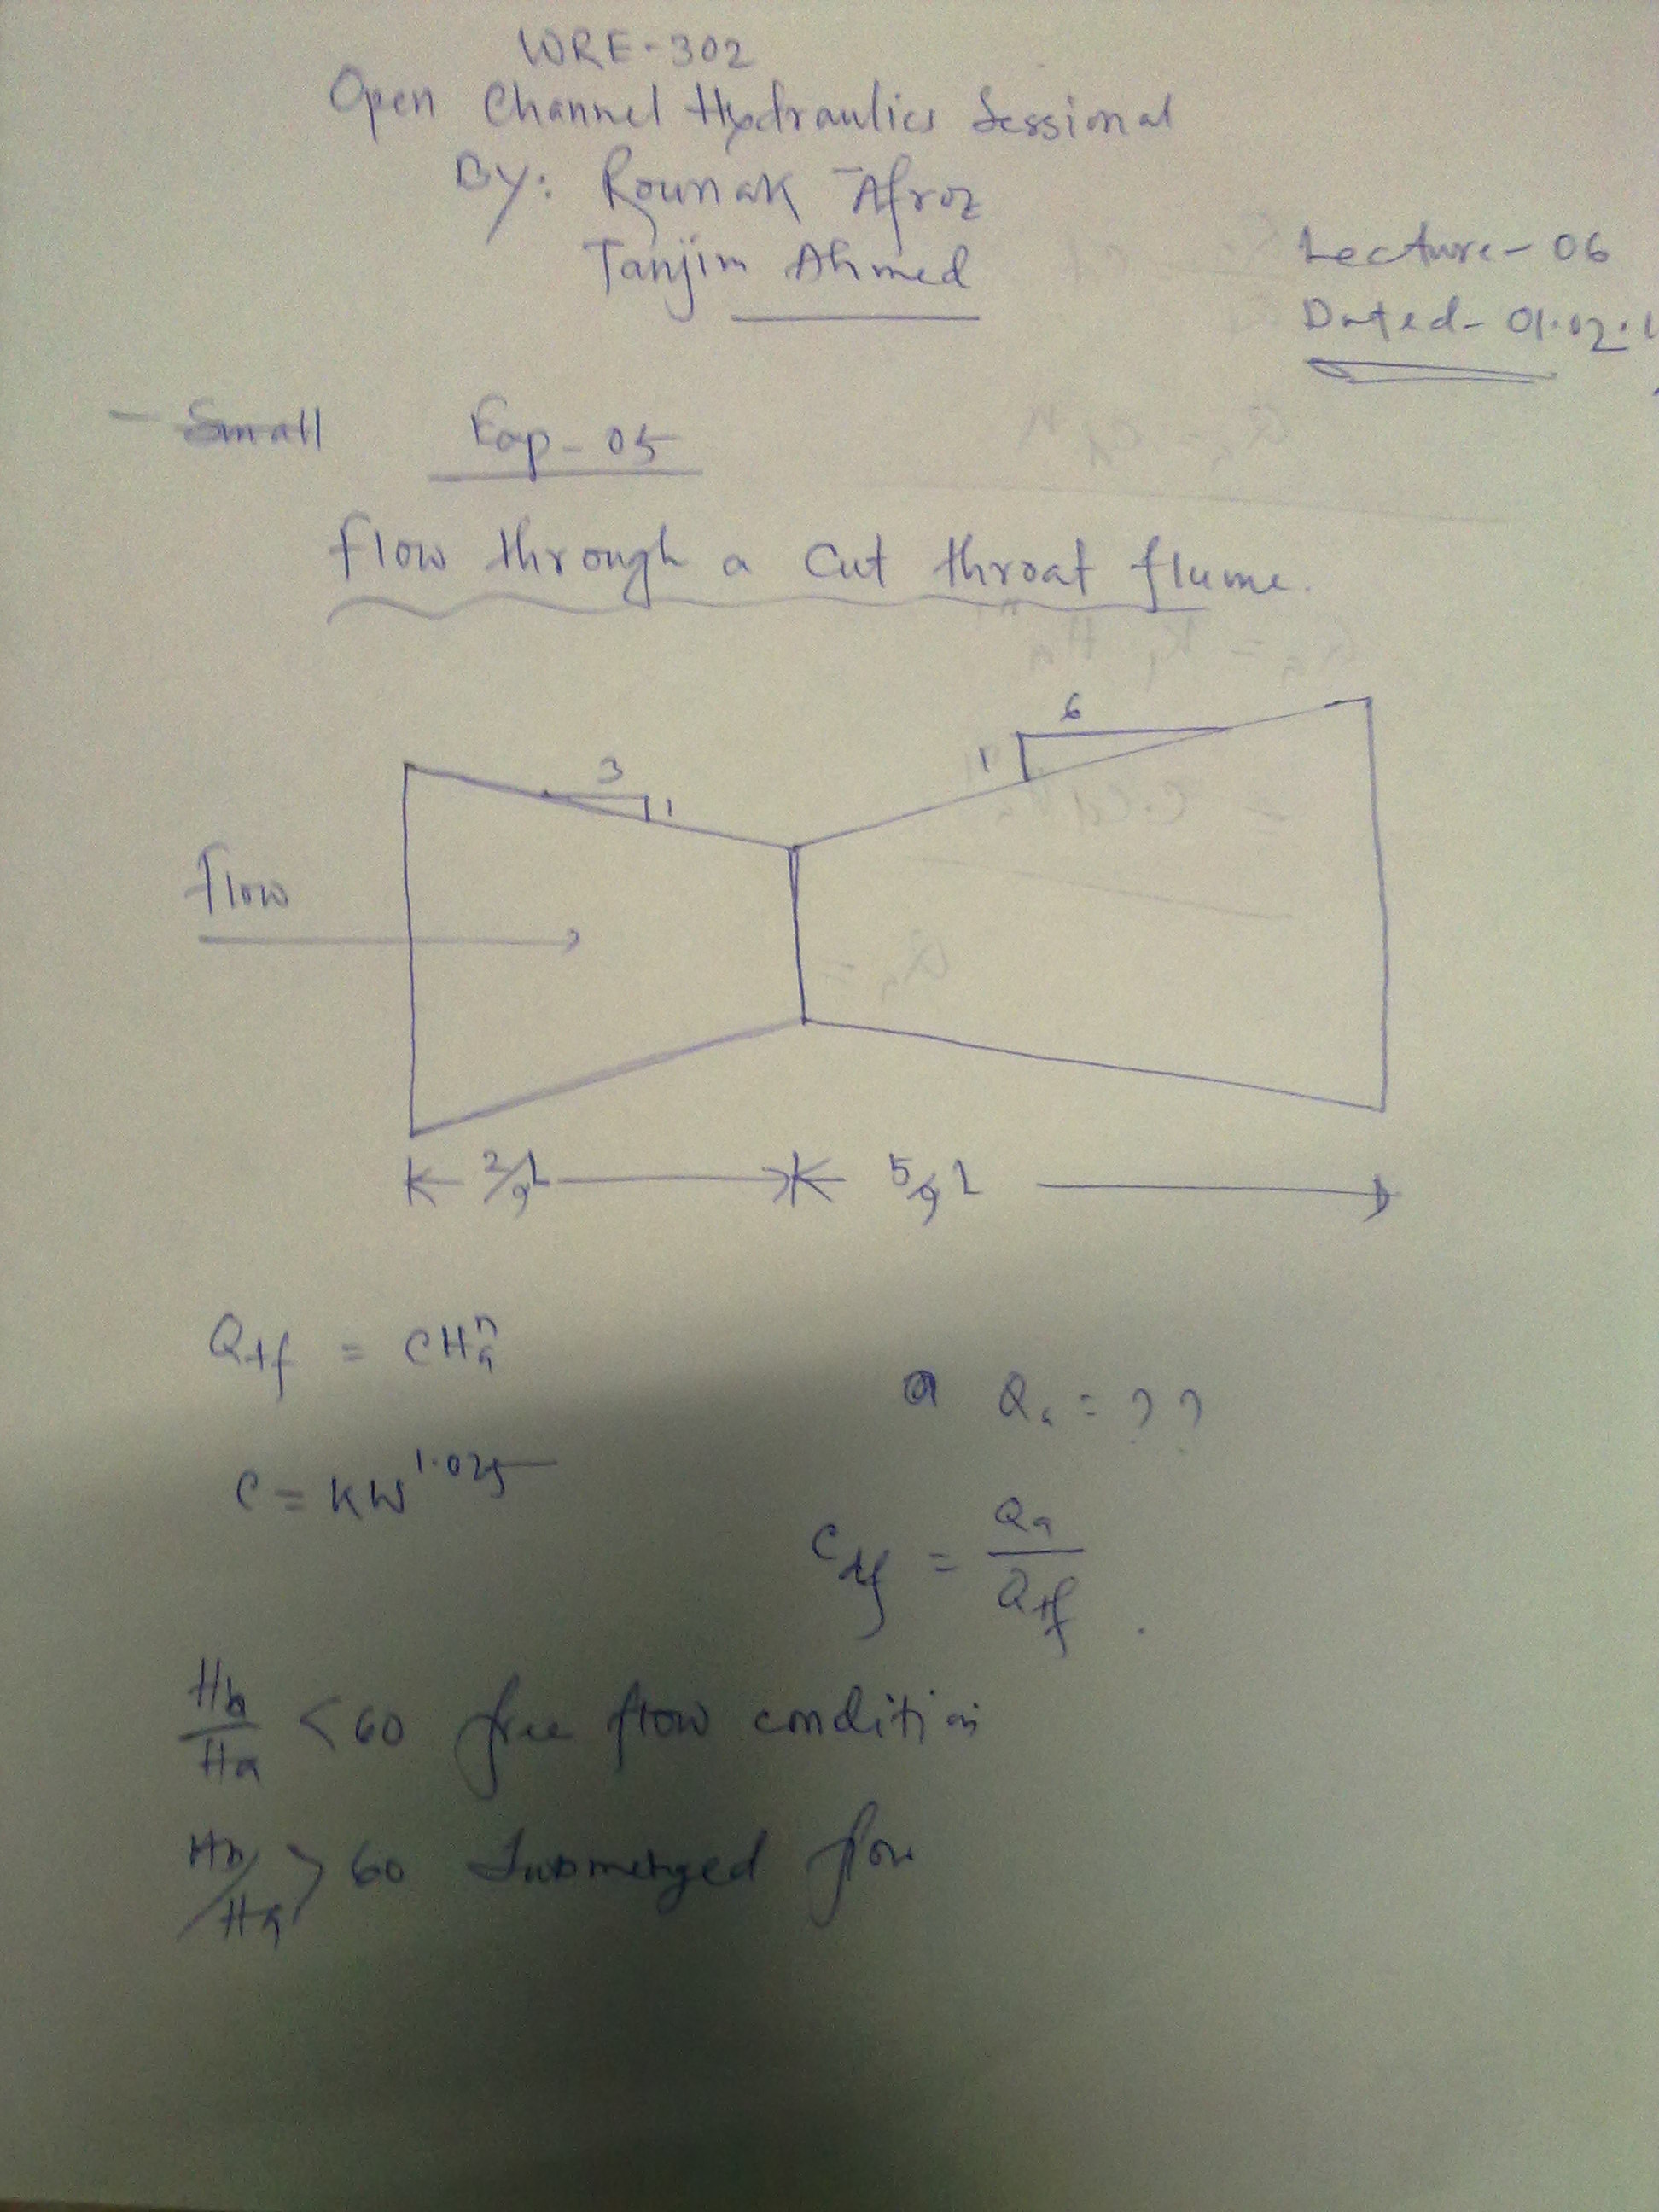 WRE-302
Open Channel Hydraulics Sessional
By: Rounak Afroz
Tanjim Ahmed
Lecture-06
Dated- 01.02.1
Small
Exp-05
Flow through a Cut throat flume.
3
1
6
1
Flow
2/9L
5/9L
Qtf = CHa^n
C = KW^1.025
Qa = ??
Cdf = Qa/Qtf.
Hb/Ha <60 free flow condition
Hb/Ha >60 Submerged flow